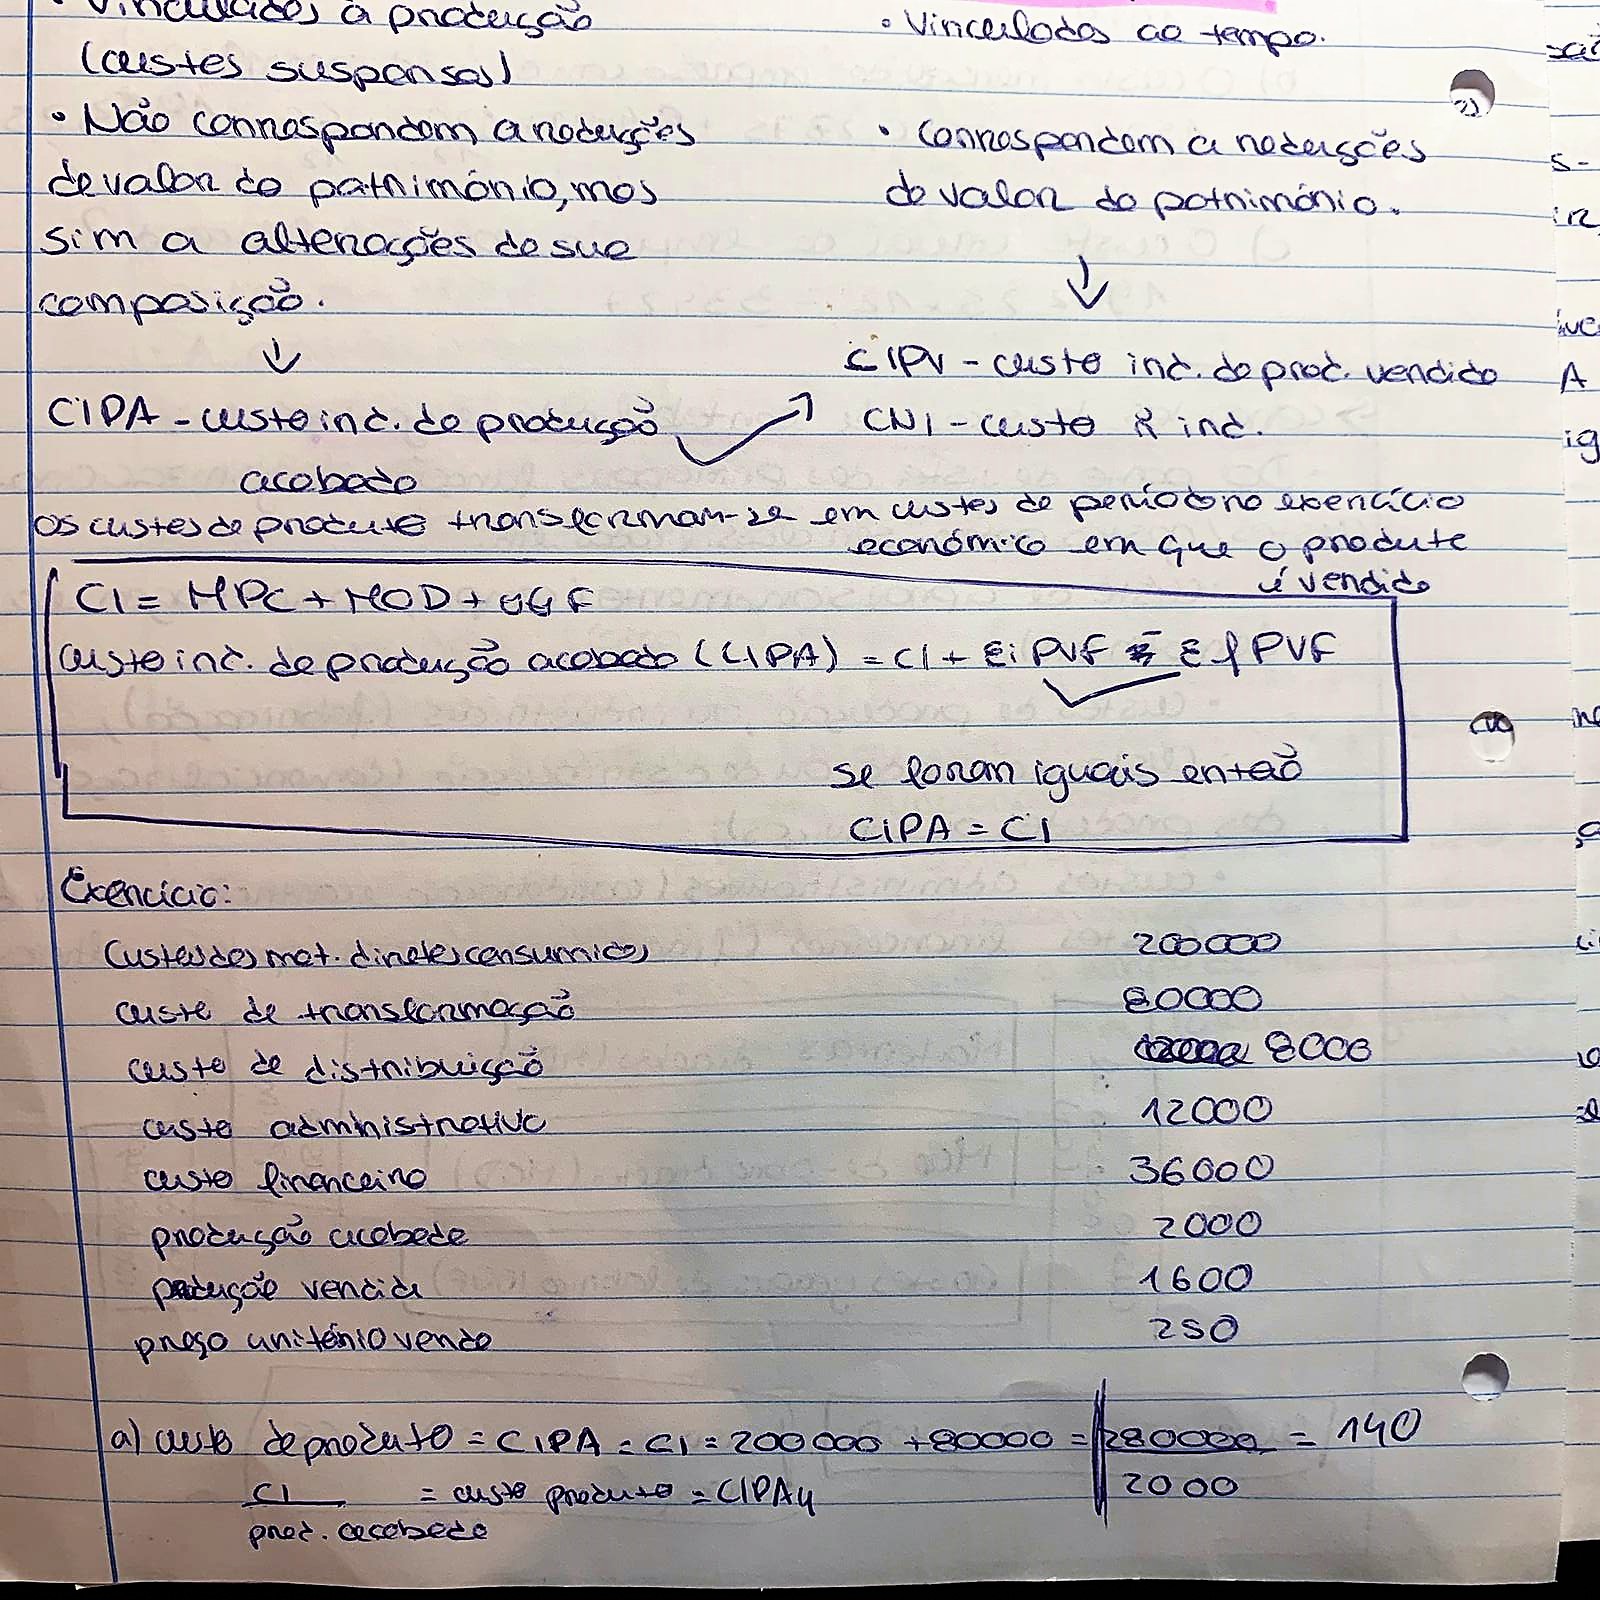 • Vinculados à produção
(custos suspensos)
• Não correspondem a reduções
de valor do património, mas
sim a alterações de sua
composição.
↓
CIPA - custo ind. de produção
acabado
• Vinculados ao tempo.
• Correspondem a reduções
de valor do património.
↓
CIPV - custo ind. do prod. vendido
CNI - custo ñ ind.
Os custos de produto transformam-se em custos de período no exercício
económico em que o produto
é vendido
CI = MPC + MOD + GGF
Custo ind. de produção acabado (CIPA) = CI + Ei PVF - Ef PVF
se foram iguais então
CIPA = CI
Exercício:
Custos dos mat. diretos consumidos 200000
custo de transformação 80000
custo de distribuição 8000
custo administrativo 12000
custo financeiro 36000
produção acabada 2000
produção vendida 1600
preço unitário venda 250
a) custo de produto = CIPA = CI = 200000 + 80000 = 280000 = 140
2000
CI = custo produto = CIPAu
prod. acabada